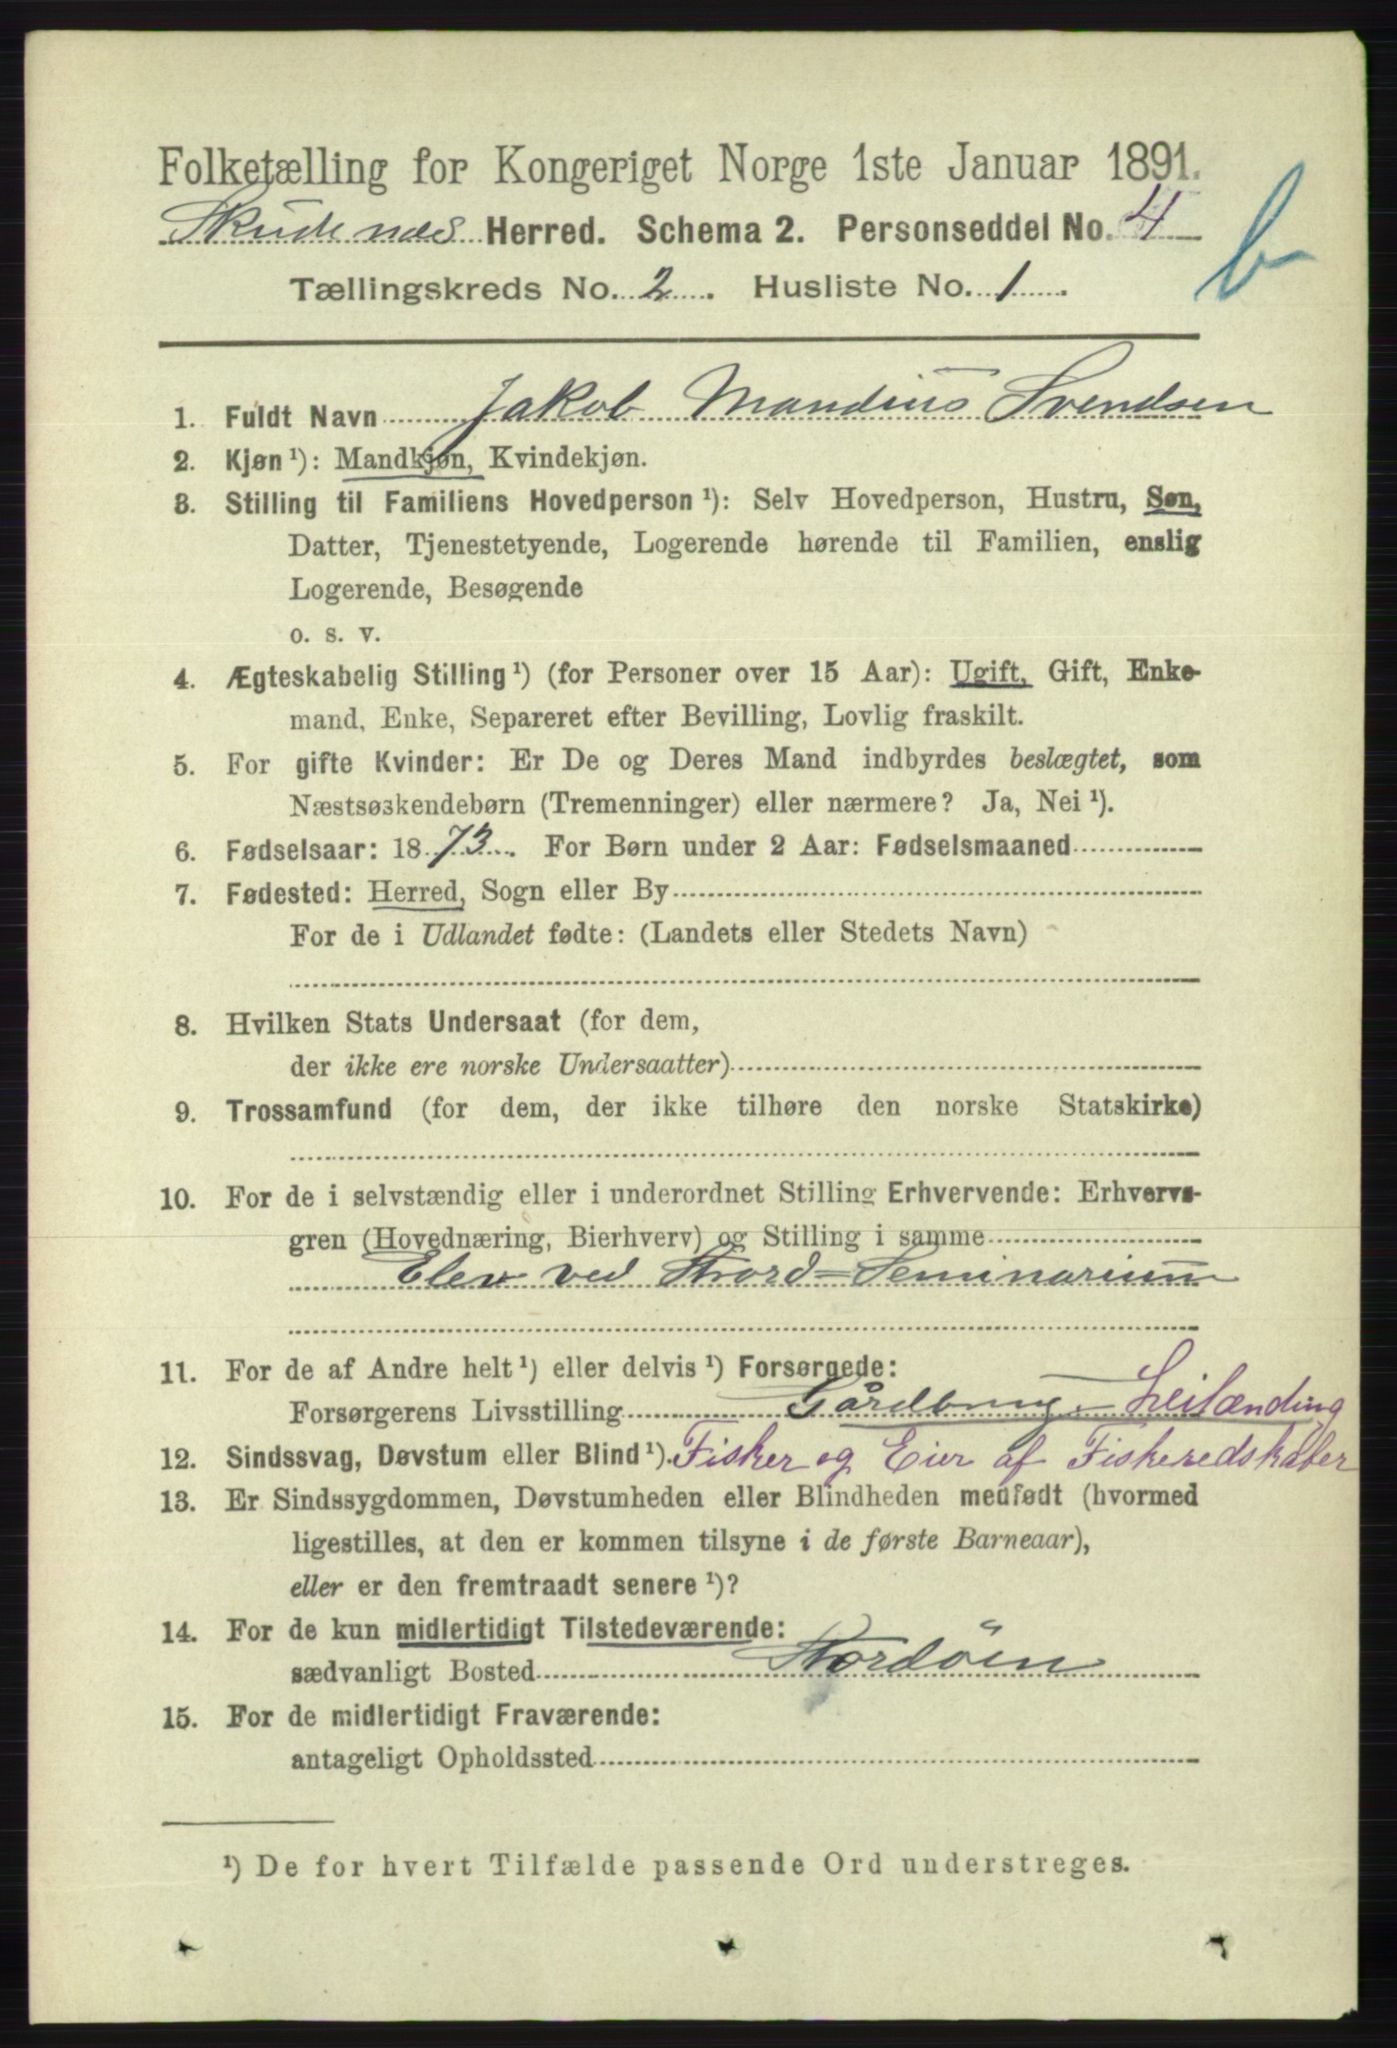 Folketælling for Kongeriget Norge 1ste Januar 1891.
Skudenæs Herred. Schema 2. Personseddel No. 4
b
Tællingskreds No. 2. Husliste No. 1.
1. Fuldt Navn Jakob Mandius Svendsen
2. Kjøn ¹): Mandkjøn, Kvindekjøn.
3. Stilling til Familiens Hovedperson ¹): Selv Hovedperson, Hustru, Søn,
Datter, Tjenestetyende, Logerende hørende til Familien, enslig
Logerende, Besøgende
o. s. v.
4. Ægteskabelig Stilling ¹) (for Personer over 15 Aar): Ugift, Gift, Enke-
mand, Enke, Separeret efter Bevilling, Lovlig fraskilt.
5. For gifte Kvinder: Er De og Deres Mand indbyrdes beslægtet, som
Næstsøskendebørn (Tremenninger) eller nærmere? Ja, Nei ¹).
6. Fødselsaar: 1873. For Børn under 2 Aar: Fødselsmaaned
7. Fødested: Herred, Sogn eller By
For de i Udlandet fødte: (Landets eller Stedets Navn)
8. Hvilken Stats Undersaat (for dem,
der ikke ere norske Undersaatter)
9. Trossamfund (for dem, der ikke tilhøre den norske Statskirke)
10. For de i selvstændig eller i underordnet Stilling Erhvervende: Erhvervs-
gren (Hovednæring, Bierhverv) og Stilling i samme
Elev ved Stord=Seminarium
11. For de af Andre helt ¹) eller delvis ¹) Forsørgede:
Forsørgerens Livsstilling Gårdbrug. Leilænding
12. Sindssvag, Døvstum eller Blind ¹). Fisker og Eier af Fiskeredskaber
13. Er Sindssygdommen, Døvstumheden eller Blindheden medfødt (hvormed
ligestilles, at den er kommen tilsyne i de første Barneaar),
eller er den fremtraadt senere ¹)?
14. For de kun midlertidigt Tilstedeværende:
sædvanligt Bosted Stordöen
15. For de midlertidigt Fraværende:
antageligt Opholdssted
¹) De for hvert Tilfælde passende Ord understreges.